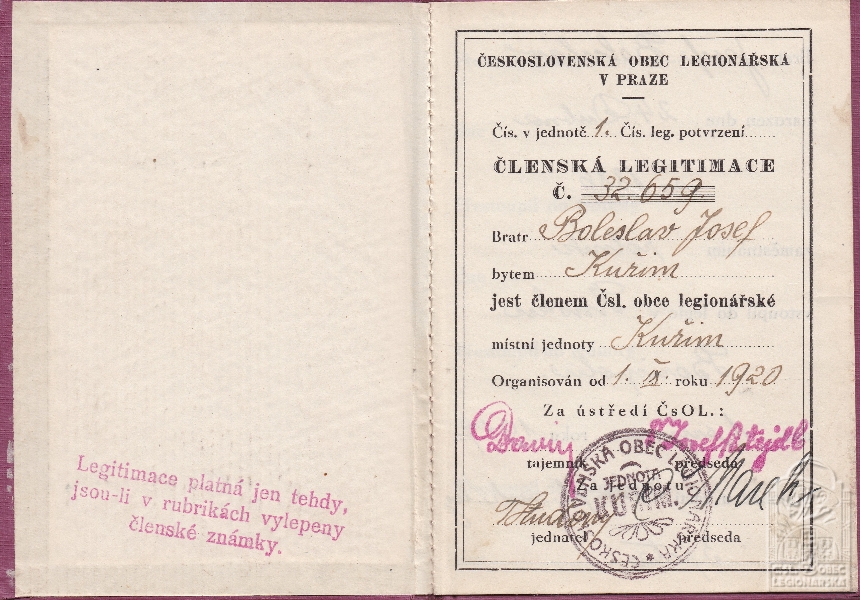 Legitimace platná jen tehdy,
jsou-li v rubrikách vylepeny
členské známky.
ČESKOSLOVENSKÁ OBEC LEGIONÁŘSKÁ
V PRAZE
Čís. v jednotě 1. Čís. leg. potvrzení
ČLENSKÁ LEGITIMACE
Č. 32.659.
Bratr Boleslav Josef
bytem Kuřim
jest členem Čsl. obce legionářské
místní jednoty Kuřim
Organisován od 1. X. roku 1920
Za ústředí ČsOL.:
tajemník předseda
Za jednotu:
jednatel předseda
ČESKOSLOVENSKÁ OBEC LEGIONÁŘSKÁ
JEDNOTA
KUŘIM.
ČSLS. OBEC
LEGIONÁŘSKÁ